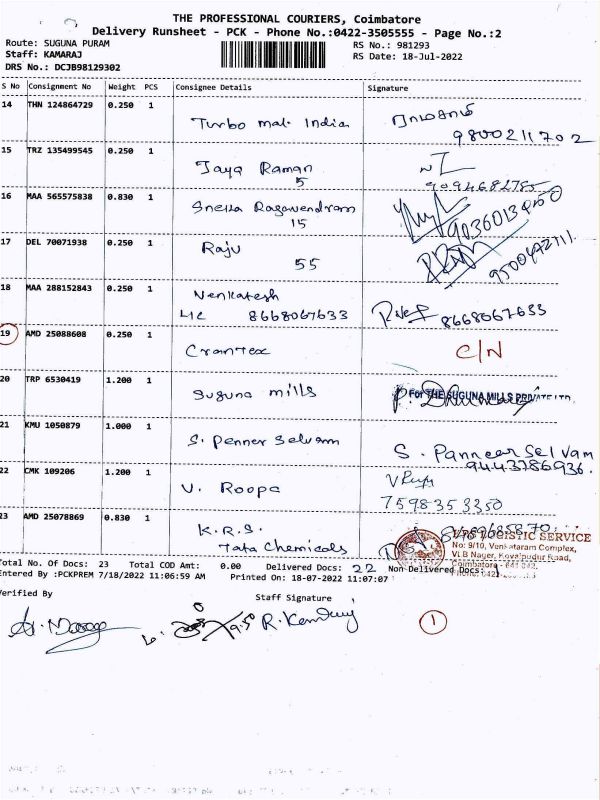 THE PROFESSIONAL COURIERS, Coimbatore
Delivery Runsheet - PCK - Phone No.:0422-3505555 - Page No.:2
Route: SUGUNA PURAM
RS No.: 981293
Staff: KAMARAJ
RS Date: 18-Jul-2022
DRS No.: DCJB98129302
S No Consignment No Weight PCS Consignee Details Signature
14 THN 124864729 0.250 1
Turbo mat. India ராமசாமி
9800211702
15 TRZ 135499545 0.250 1
Jaya Raman
5
16 MAA 565575838 0.830 1
Sneha Ragavendram
15
17 DEL 70071938 0.250 1
Raju
55
18 MAA 288152843 0.250 1
Venkatesh
LIC 8668067633 8668067633
19 AMD 25088608 0.250 1
Crantex C/N
20 TRP 6530419 1.200 1
Suguna mills For THE SUGUNA MILLS PRIVATE LTD.
21 KMU 1050879 1.000 1
S. Penner Selvam S. Panneer Selvam
9443786936.
22 CMK 109206 1.200 1
V. Roopa
7598353350
23 AMD 25078869 0.830 1
K.R.S.
Tata Chemicals
LOGISTIC SERVICE
No: 9/10, Venkataram Complex,
VLB Nager, Kovaipudur Road,
Coimbatore - 641 042.
Total No. Of Docs: 23 Total COD Amt: 0.00 Delivered Docs: 22 Non-Delivered Docs:
Entered By :PCKPREM 7/18/2022 11:06:59 AM Printed On: 18-07-2022 11:07:07
Verified By Staff Signature
1